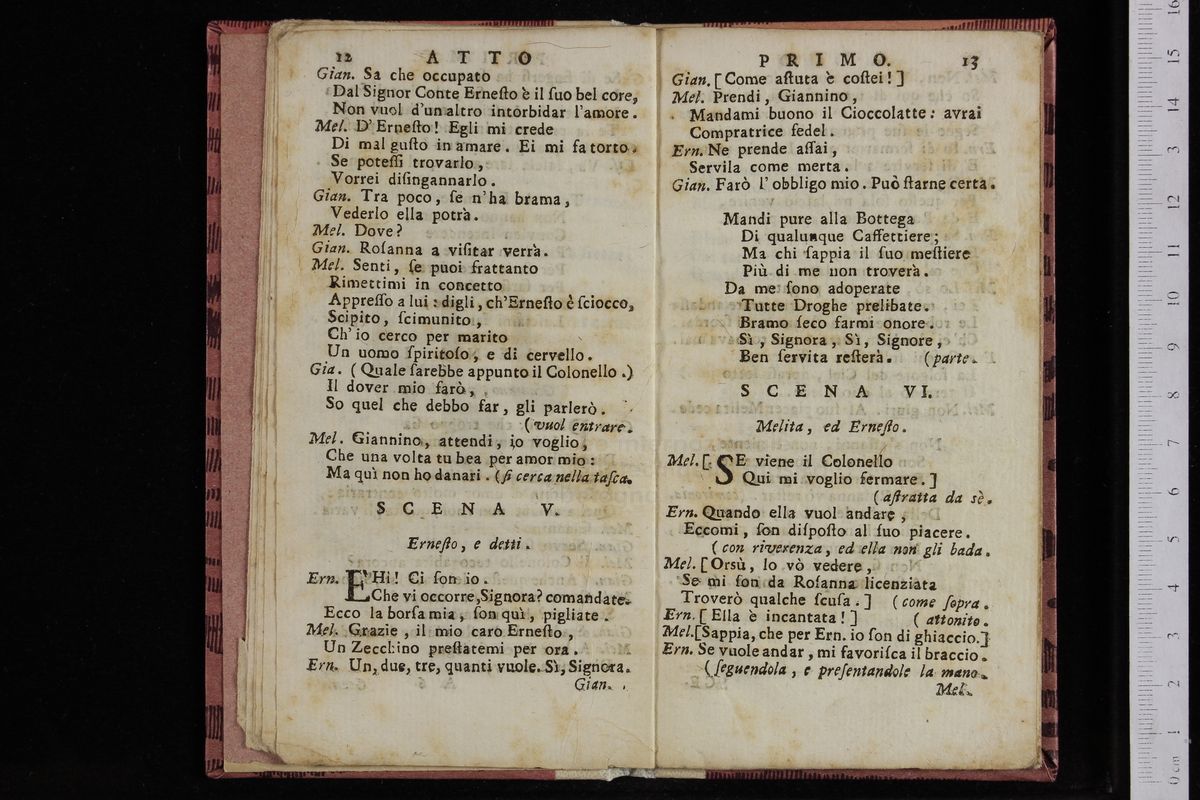 12 ATTO
Gian. Sa che occupato
Dal Signor Conte Erneſto è il ſuo bel core,
Non vuol d'un altro intorbidar l'amore.
Mel. D'Erneſto! Egli mi crede
Di mal guſto in amare. Ei mi fa torto.
Se poteſſi trovarlo,
Vorrei diſingannarlo.
Gian. Tra poco, ſe n'ha brama,
Vederlo ella potrà.
Mel. Dove?
Gian. Roſanna a viſitar verrà.
Mel. Senti, ſe puoi frattanto
Rimettimi in concetto
Appreſſo a lui: digli, ch'Erneſto è ſciocco,
Scipito, ſcimunito,
Ch'io cerco per marito
Un uomo ſpiritoſo, e di cervello.
Gia. (Quale ſarebbe appunto il Colonello.)
Il dover mio farò,
So quel che debbo far, gli parlerò.
(vuol entrare.
Mel. Giannino, attendi, io voglio,
Che una volta tu bea per amor mio:
Ma quì non ho danari. (ſi cerca nella taſca.
SCENA V.
Erneſto, e detti.
Ern. EHi! Ci ſon io.
Che vi occorre, Signora? comandate.
Ecco la borſa mia, ſon quì, pigliate.
Mel. Grazie, il mio caro Erneſto,
Un Zecchino preſtatemi per ora.
Ern. Un, due, tre, quanti vuole. Sì, Signora.
Gian.
PRIMO. 13
Gian. [Come aſtuta è coſtei!]
Mel. Prendi, Giannino,
Mandami buono il Cioccolatte: avrai
Compratrice fedel.
Ern. Ne prende aſſai,
Servila come merta.
Gian. Farò l'obbligo mio. Può ſtarne certa.
Mandi pure alla Bottega
Di qualunque Caffettiere;
Ma chi ſappia il ſuo meſtiere
Più di me non troverà.
Da me ſono adoperate
Tutte Droghe prelibate.
Bramo ſeco farmi onore.
Sì, Signora, Sì, Signore,
Ben ſervita reſterà. (parte.
SCENA VI.
Melita, ed Erneſto.
Mel. [SE viene il Colonello
Qui mi voglio fermare.]
(aſtratta da sè.
Ern. Quando ella vuol andare,
Eccomi, ſon diſpoſto al ſuo piacere.
(con riverenza, ed ella non gli bada.
Mel. [Orsù, lo vò vedere,
Se mi ſon da Roſanna licenziata
Troverò qualche ſcuſa.] (come ſopra.
Ern. [Ella è incantata!] (attonito.
Mel. [Sappia, che per Ern. io ſon di ghiaccio.]
Ern. Se vuole andar, mi favoriſca il braccio.
(ſeguendola, e preſentandole la mano.
Mel.
0 cm 1 2 3 4 5 6 7 8 9 10 11 12 3 14 15 16